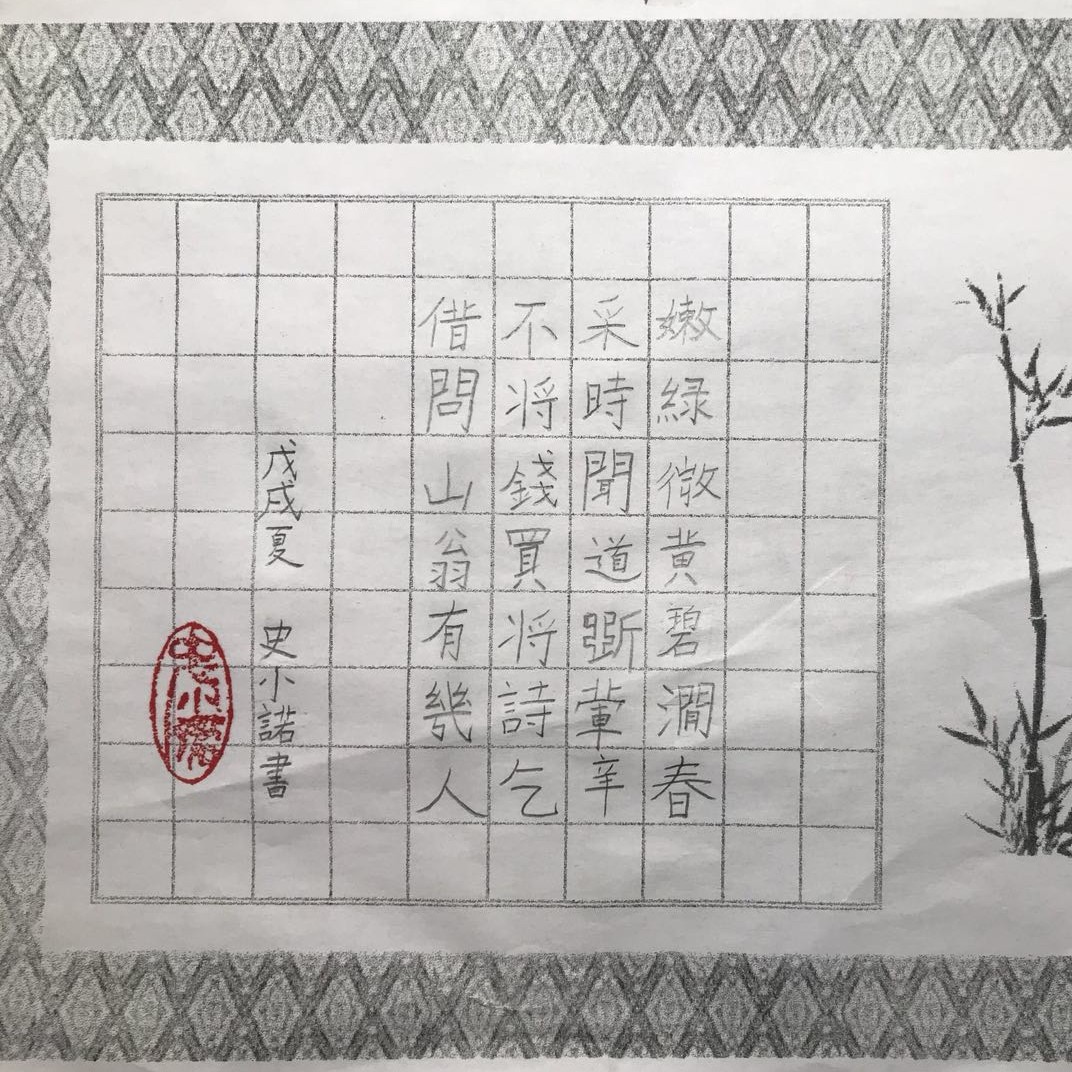 嫩緑微黄碧澗春
采時聞道斷葷辛
不将錢買将詩乞
借問山翁有幾人
戊戌夏 史小諾書
史小諾